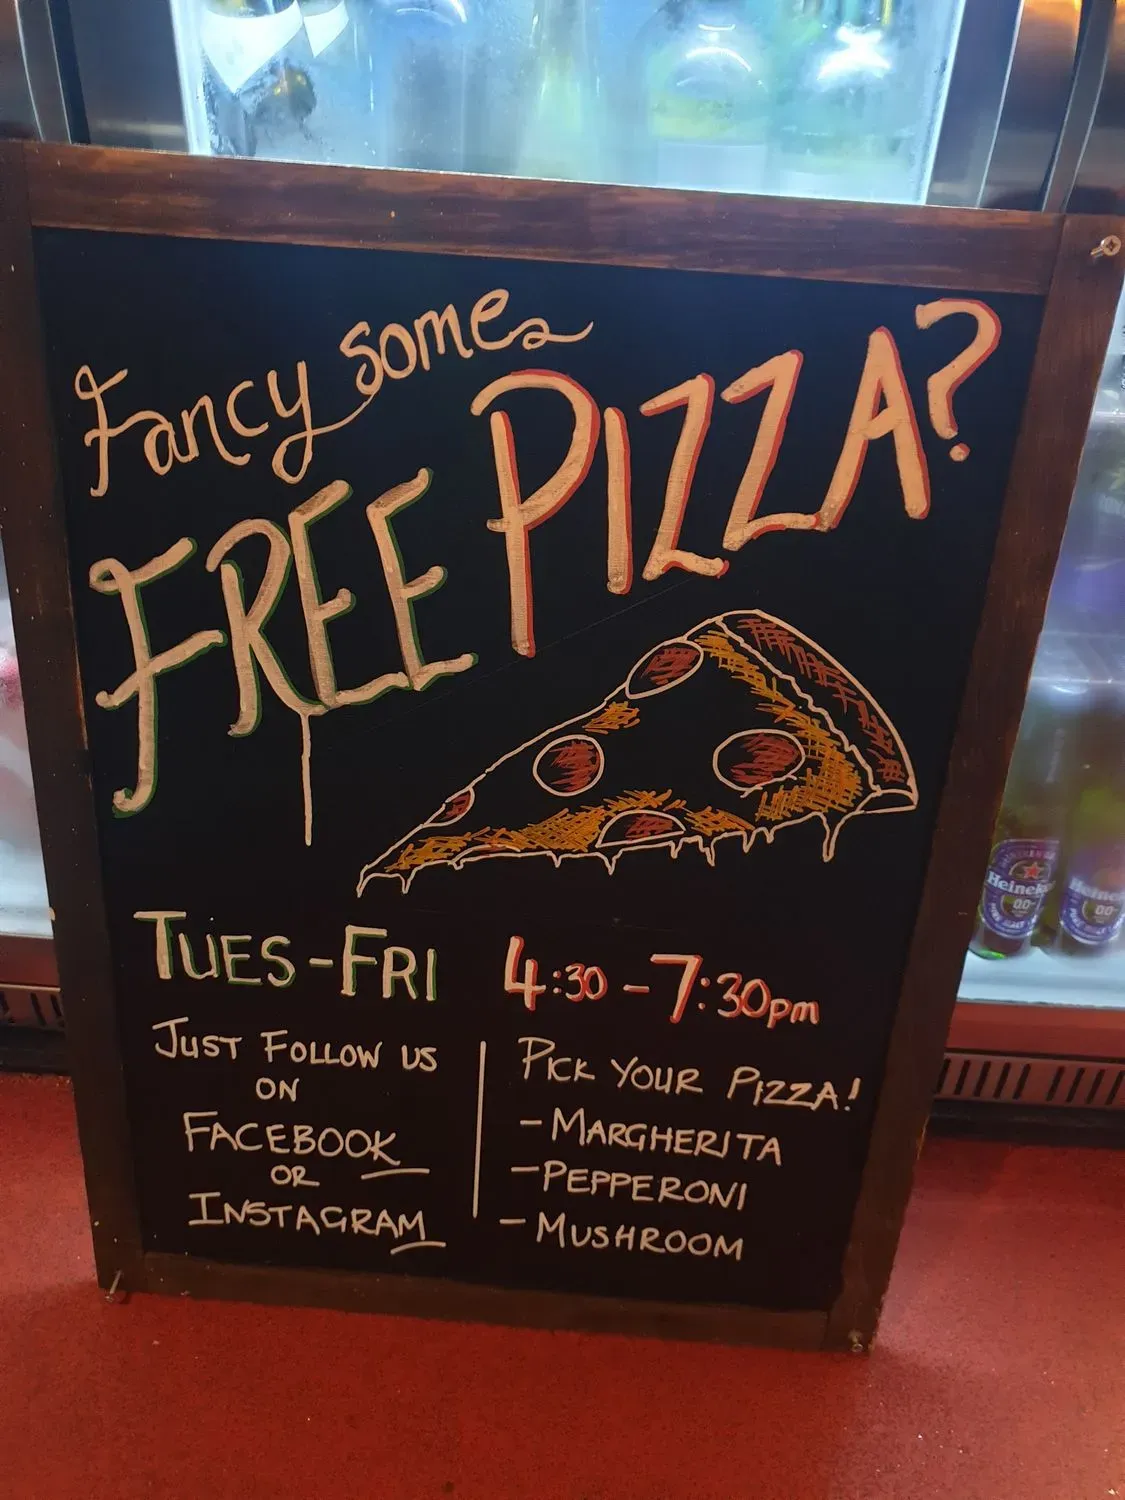 Fancy some
FREE PIZZA?
TUES-FRI 4:30-7:30pm
JUST FOLLOW US
ON
FACEBOOK
OR
INSTAGRAM
PICK YOUR PIZZA!
- MARGHERITA
- PEPPERONI
- MUSHROOM
Heineken
0.0
Heineken
0.0